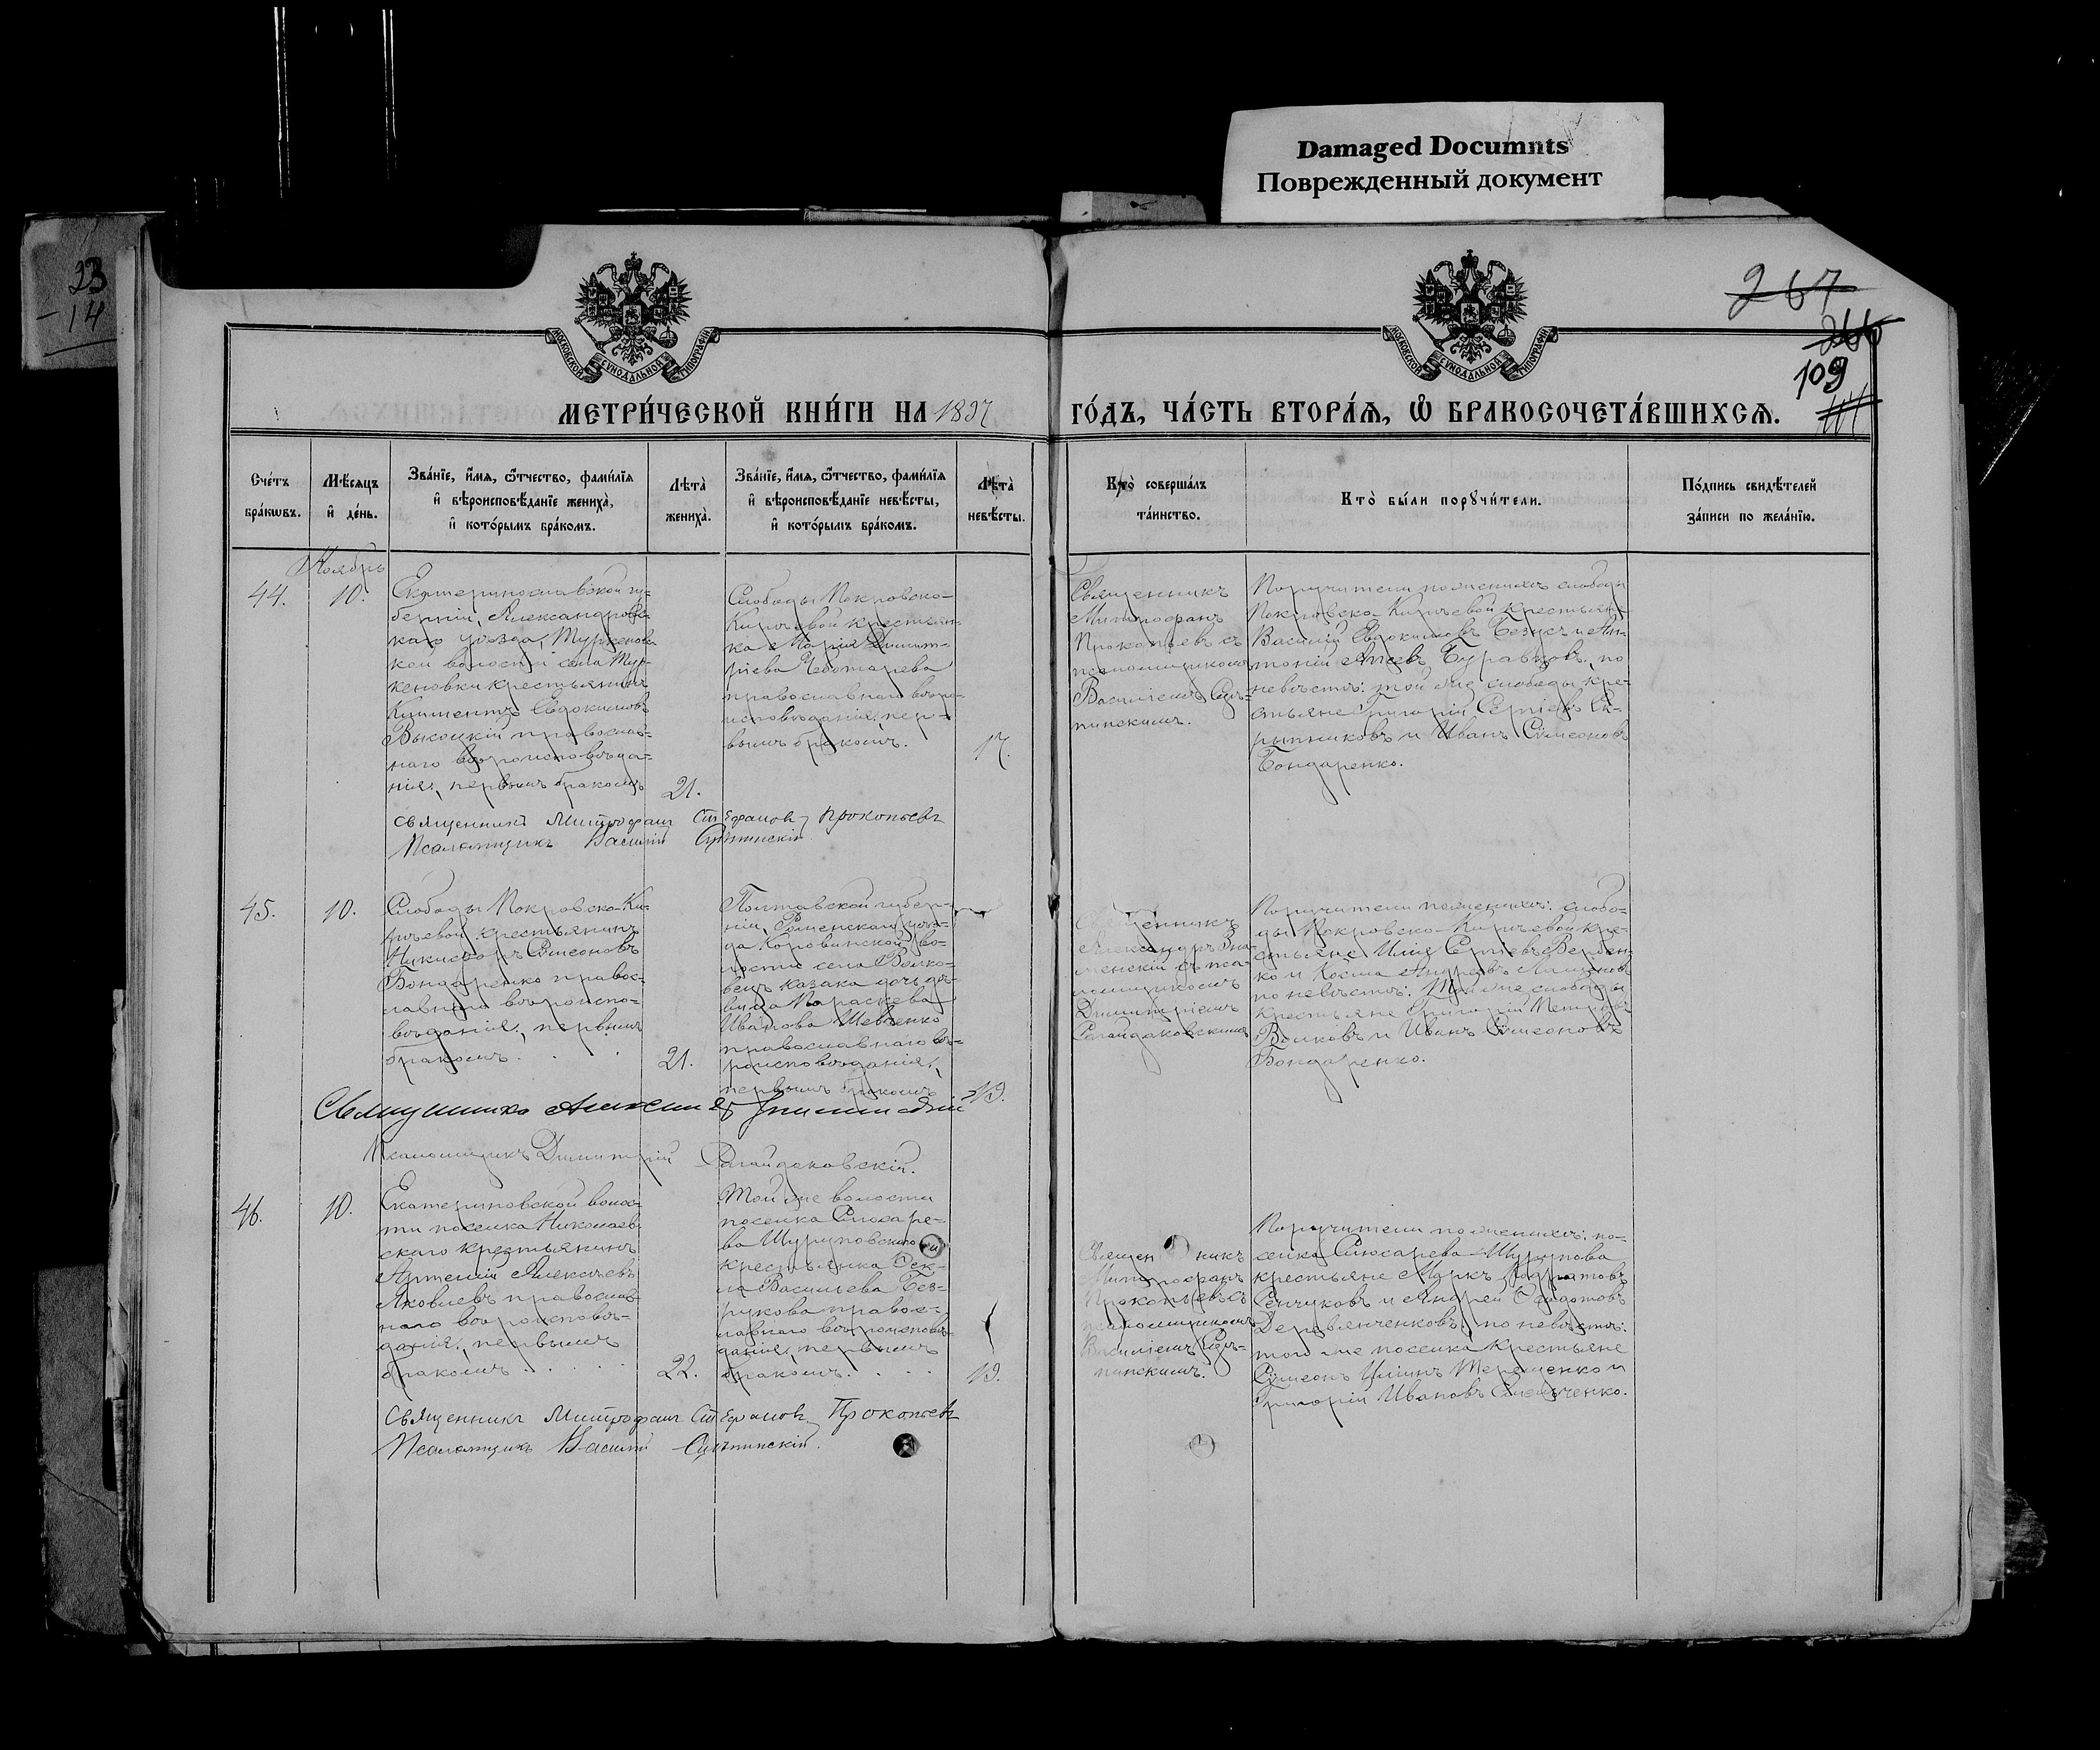 Damaged Documnts
Поврежденный документ
23
-14
267
266
109
МОСКОВСКОЙ СѴНОДАЛЬНОЙ ТИПОГРАФІИ
МОСКОВСКОЙ СѴНОДАЛЬНОЙ ТИПОГРАФІИ
МЕТРИ́ЧЕСКОЙ КНИ́ГИ НА 1897 ГО́ДЪ, ЧА́СТЬ ВТОРА́Я, Ѽ БРАКОСОЧЕТА́ВШИХСЯ.
Сче́тъ бра́кѡвъ.
Мѣ́сяцъ и҆ де́нь.
Зва́нїе, и҆́мя, ѻ҆́тчество, фами́лїя
и҆ вѣроисповѣ́данїе жениха̀,
и҆ кото́рымъ бра́комъ.
Лѣта̀ жениха̀.
Зва́нїе, и҆́мя, ѻ҆́тчество, фами́лїя
и҆ вѣроисповѣ́данїе невѣ́сты,
и҆ кото́рымъ бра́комъ.
Лѣта̀ невѣ́сты.
Кто̀ соверша́лъ
та́инство.
Кто̀ бы́ли порꙋчи́тели.
По́дпись свидѣ́телей
за́писи по жела́нїю.
Ноябрь
44.
10.
Екатеринославской гу-
берніи, Александровс-
каго уѣзда, Туркенов-
кой волости села Тур-
кеновки крестьянинъ
Климентъ Евдокимовъ
Высоцкій православ-
наго вѣроисповѣда-
нія, первымъ бракомъ
21.
Слободы Покровско-
Кирѣевой крестьян-
ка Марія Димит-
ріева Чеботарева
православнаго вѣро-
исповѣданія, пер-
вымъ бракомъ.
17.
Священникъ
Митрофанъ
Прокопьевъ съ
псаломщикомъ
Василіемъ
Поручители по женихѣ: слободы
Покровско-Кирѣевой крестьяне
Василій Евдокимовъ Безусъ и Ан-
тоній Буравковъ, по
невѣстѣ: той же слободы кре-
стьяне Григорій Сергіевъ Ск-
рыпниковъ и Иванъ Симеоновъ
Бондаренко.
Священникъ Митрофанъ Стефановъ Прокопьевъ
Псаломщикъ Василій
45.
10.
Слободы Покровско-Ки-
рѣевой крестьянинъ
Никифоръ Симеоновъ
Бондаренко правос-
лавнаго вѣроиспо-
вѣданія, первымъ
бракомъ.
21.
Полтавской губер-
ніи, Роменскаго уѣз-
да Коровинской во-
лости села Волко-
вецъ казака дочь дѣ-
вица Параскева
Иванова Шевченко
православнаго вѣ-
роисповѣданія,
первымъ бракомъ
19.
Священникъ
Александръ Зна-
менскій съ пса-
ломщикомъ
Димитріемъ
Сагайдаковскимъ
Поручители по женихѣ: слобо-
ды Покровско-Кирѣевой кре-
стьяне Илія Сергіевъ
и Косма Андреевъ
по невѣстѣ: той же слободы
крестьяне Григорій Петровъ
Волковъ и Иванъ Симеоновъ
Бондаренко.
Священникъ Александръ Знаменскій
Псаломщикъ Димитрій Сагайдаковскій.
46.
10.
Екатериновской волос-
ти поселка Николаев-
скаго крестьянинъ
Артемій Алексѣевъ
Яковлевъ православ-
наго вѣроисповѣ-
данія, первымъ
бракомъ
22.
Той же волости
поселка Слюсаре-
ва Шуруповскаго
крестьянка Ѳек-
ла Васильева Без-
рукова правос-
лавнаго вѣроисповѣ-
данія, первымъ
бракомъ.
19.
Священникъ
Митрофанъ
Прокопьевъ съ
псаломщикомъ
Василіемъ
Поручители по женихѣ: по-
селка Слюсарева-Шурупова
крестьяне Маркъ
Сенчуковъ и Андрей Ѳедотовъ
Деревянченковъ, по невѣстѣ:
того же поселка крестьяне
Симеонъ Ильинъ Терещенко и
Григорій Ивановъ Семенченко.
Священникъ Митрофанъ Стефановъ Прокопьевъ
Псаломщикъ Василій